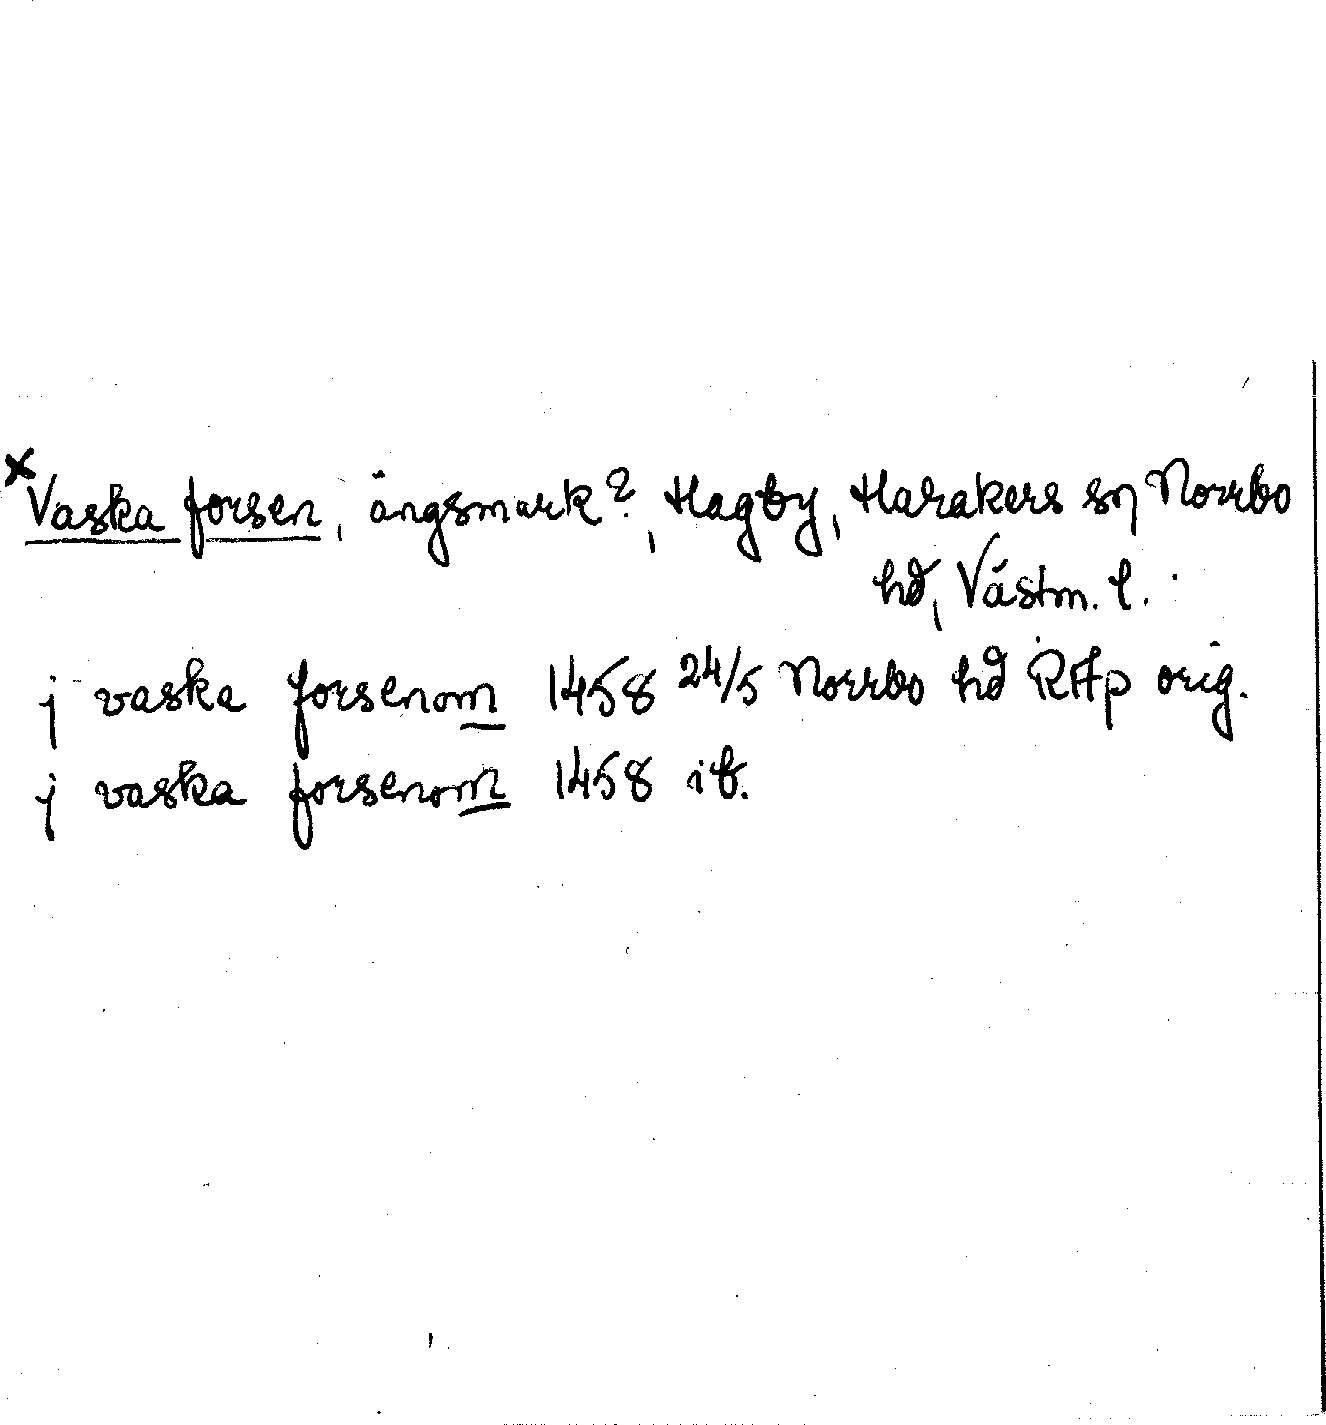 ×Vaska forsen, ängsmark?, Hagby, Harakers sn Norrbo
hd, Västm. l.
j vaska forsenom 1458 24/5 Norrbo hd RAp orig.
j vaska forsenom 1458 ib.